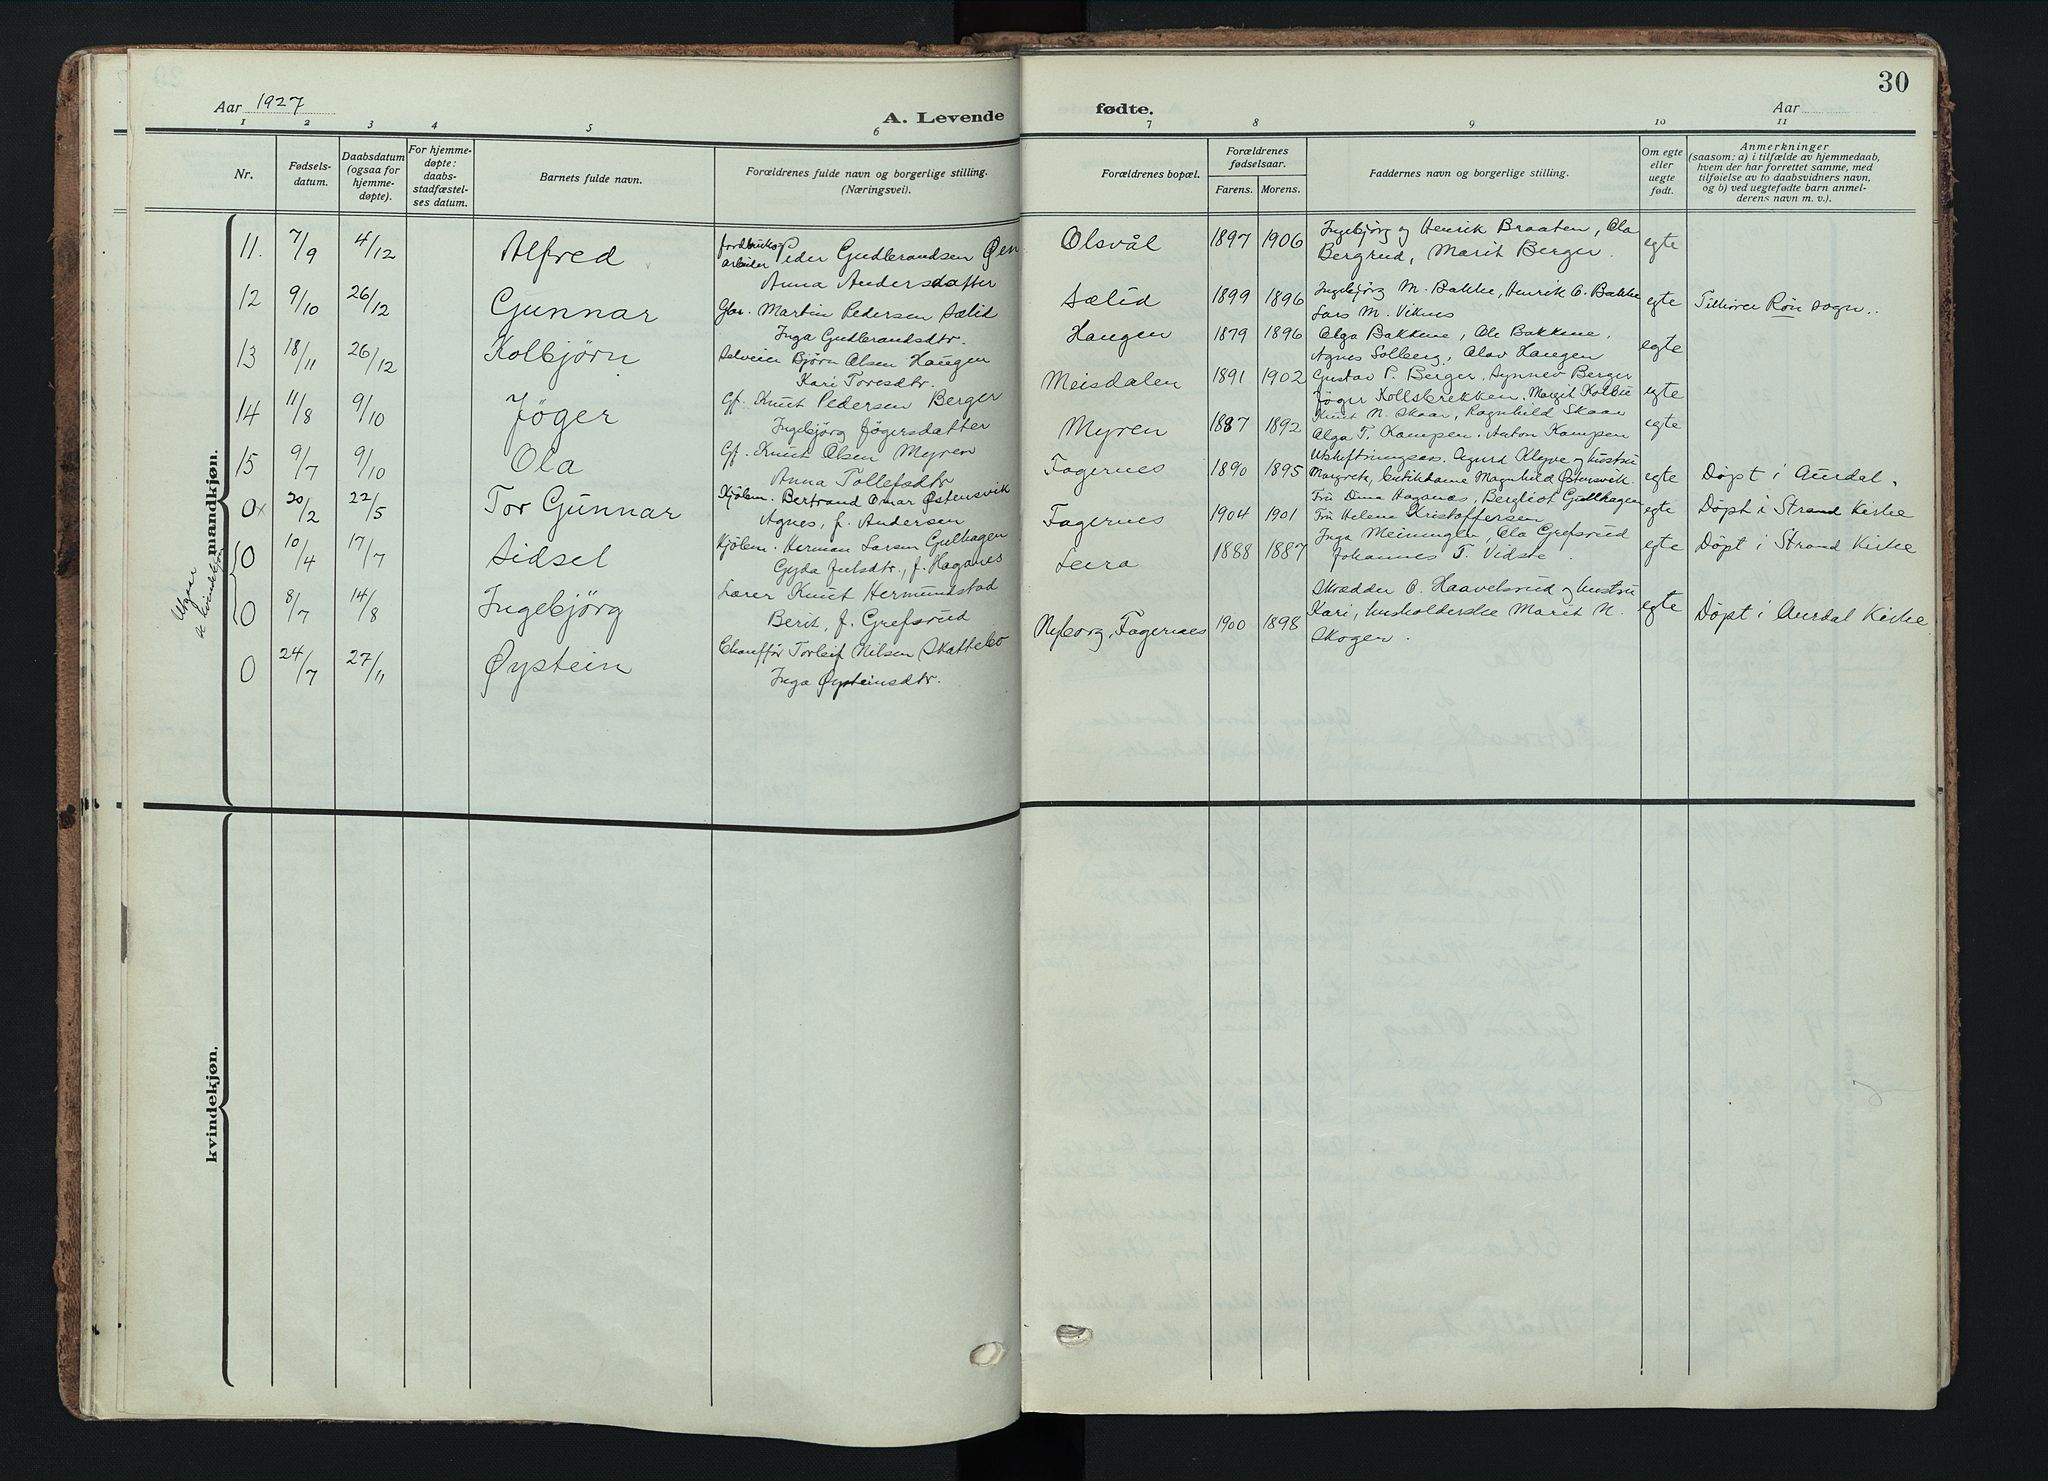 Aar 1927
A. Levende
1 2 3 4 5 6
Nr.
Fødsels-
datum.
Daabsdatum
(ogsaa for
hjemme-
døpte).
For hjemme-
døpte:
daabs-
stadfæstel-
ses datum.
Barnets fulde navn.
Forældrenes fulde navn og borgerlige stilling.
(Næringsvei).
mandkjøn.
11. 7/9 4/12 Alfred
Peder Gudbrandsen Øen
arbeider
Anna Andersdatter
12 9/10 26/12 Gunnar
Gbr. Martin Pedersen Sælid
Inga Gudbrandsdtr.
13 18/11 26/12 Kolbjørn
Selveier Bjørn Olsen Haugen
Kari Toresdtr.
14 11/8 9/10 Jøger
Gf. Knut Pedersen Berger
Ingebjørg Jøgersdatter
15 9/7 9/10 Ola
Gf. Knut Olsen Myren
Anna Tollefsdtr
0x 20/2 22/5 Tor Gunnar
Kjøbm. Bertrand Omar Østensvik
Agnes, f. Andersen
0 10/4 17/7 Sidsel
Kjøbm. Herman Larsen Gulhagen
Gyda Julsdtr., f. Haganes
0 8/7 14/8 Ingebjørg
Lærer Knut Hermundstad
Berit, f. Grefsrud
0 24/7 27/11 Øystein
Chauffør Torleif Nilsen Skattebo
Inga Øysteinsdtr.
kvindekjøn.
30
fødte.
Aar
7 8 9 10 11
Forældrenes bopæl.
Forældrenes
fødselsaar.
Farens. Morens.
Faddernes navn og borgerlige stilling.
Om egte
eller
uegte
født.
Anmerkninger
(saasom: a) i tilfælde av hjemmedaab,
hvem der har forrettet samme, med
tilføielse av to daabsvidners navn,
og b) ved uegtefødte barn anmel-
derens navn m. v.).
Olsvål 1897 1906
Ingebjørg og Henrik Braaten, Ola
Bergrud, Marit Berger.
egte
Sælid 1899 1896
Ingebjørg M. Bakke, Henrik O. Bakke
Lars M. Viknes
egte Tilhører Røn sogn.
Haugen 1879 1896
Olga Bakkene, Ole Bakkene.
Agnes Solberg, Olav Haugen
egte
Meisdalen 1891 1902
Gustav P. Berger, Synnev Berger
Jøger Kollsbrekken, Margit Kolbu
egte
Myren 1887 1892
Knut N. Skaar, Ragnhild Skaar
Olga T. Kampen. Anton Kampen
egte
Fagernes 1890 1895
Margrete, Magnhild Østensvik.
egte Døpt i Aurdal.
Fagernes 1904 1901
Fru Dina Haganæs, Bergliot Gullhagen
Fru Helene Kristoffersen
egte Døpt i Strand Kirke
Leira 1888 1887
Inga Meiningen, Ola Grefsrud
Johannes T. Vidste.
egte Døpt i Strand Kirke
Nyborg, Fagernes 1900 1898
Skrædder O. Haavelsrud og hustru
Kari, husholderske Marit N.
Skogen.
egte Døpt i Aurdal Kirke